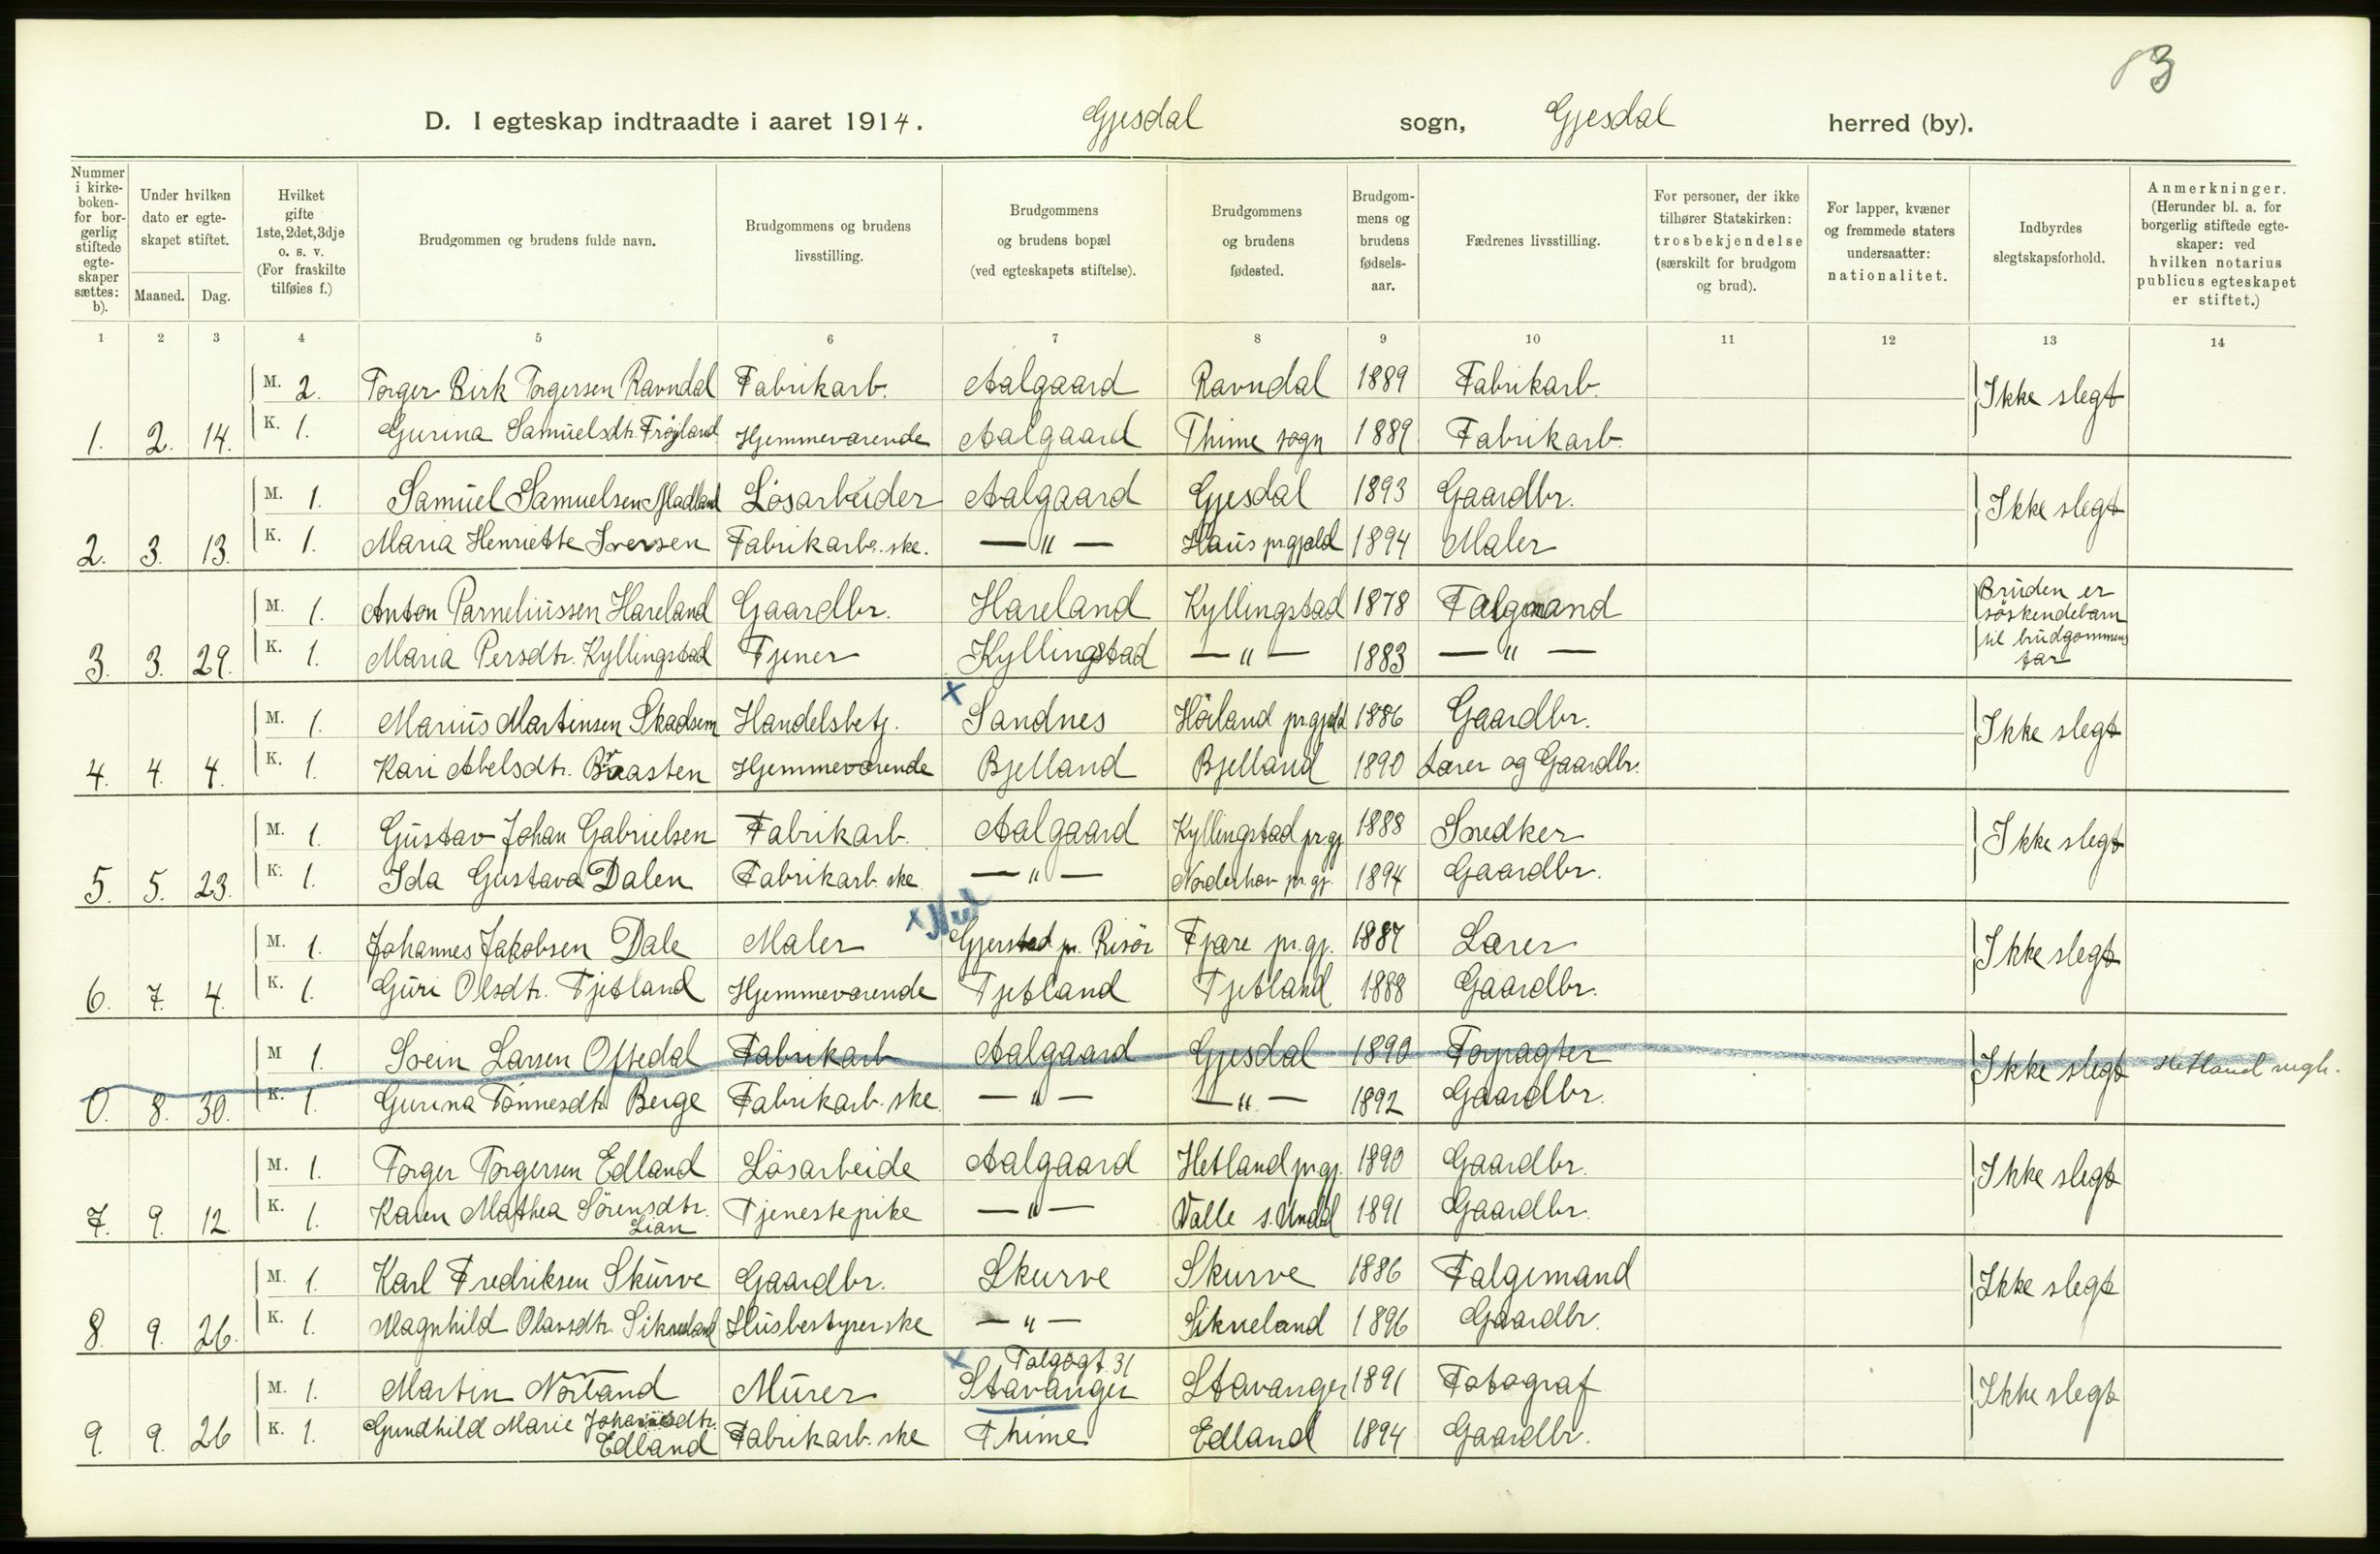 13
D. I egteskap indtraadte i aaret 1914. Gjesdal sogn, Gjesdal herred (by).
Nummer i kirke-boken- for bor-gerlig stiftede egte-skaper sættes: b). | Under hvilken dato er egte-skapet stiftet. Maaned. Dag. | Hvilket gifte 1ste, 2det, 3dje o. s. v. (For fraskilte tilføies f.) | Brudgommen og brudens fulde navn. | Brudgommens og brudens livsstilling. | Brudgommens og brudens bopæl (ved egteskapets stiftelse). | Brudgommens og brudens fødested. | Brudgom-mens og brudens fødsels-aar. | Fædrenes livsstilling. | For personer, der ikke tilhører Statskirken: trosbekjendelse (særskilt for brudgom og brud). | For lapper, kvæner og fremmede staters undersaatter: nationalitet. | Indbyrdes slegtskapsforhold. | Anmerkninger. (Herunder bl. a. for borgerlig stiftede egte-skaper: ved hvilken notarius publicus egteskapet er stiftet.)
1 2 3 4 5 6 7 8 9 10 11 12 13 14
M. 2. Torger Birk Torgersen Ravndal Fabrikarb. Aalgaard Ravndal 1889 Fabrikarb. Ikke slegt
1. 2. 14. K. 1. Gurina Samuelsdtr. Frøjland Hjemmeværende Aalgaard Thime sogn 1889 Fabrikarb.
M. 1. Samuel Samuelsen Madland Løsarbeider Aalgaard Gjesdal 1893 Gaardbr. Ikke slegt
2. 3. 13. K. 1. Maria Henriette Iversen Fabrikarb. ske. — " — Haus prgjæld 1894 Maler
M. 1. Anton Parneliussen Hareland Gaardbr. Hareland Kyllingstad 1878 Falgmand Bruden er søskendebarn til brudgommens far
3. 3. 29. K. 1. Maria Persdtr. Kyllingstad Tjener Kyllingstad — " — 1883 — " —
M. 1. Marius Martinsen Skadsem Handelsbetj. x Sandnes Høiland pr.gjæld 1886 Gaardbr. Ikke slegt
4. 4. 4. K. 1. Kari Abelsdtr. Braasten Hjemmeværende Bjelland Bjelland 1890 Lærer og Gaardbr.
M. 1. Gustav Johan Gabrielsen Fabrikarb. Aalgaard Kyllingstad pr.gj. 1888 Snedker Ikke slegt
5. 5. 23. K. 1. Ida Gustava Dalen Fabrikarb. ske — " — Norderhov pr.gj. 1894 Gaardbr.
M. 1. Johannes Jakobsen Dale Maler x Gjerstad pr. Risør Fjære pr.gj. 1887 Lærer Ikke slegt
6. 7. 4. K. 1. Guri Olsdtr. Tjetland Hjemmeværende Tjetland Tjetland 1888 Gaardbr.
M 1. Svein Larsen Oftedal Fabrikarb Aalgaard Gjesdal 1890 Forpagter Ikke slegt Hetland
0. 8. 30. K. 1. Gurina Tønnesdtr. Berge Fabrikarb. ske. — " — — " — 1892 Gaardbr.
M. 1. Torger Torgersen Edland Løsarbeide Aalgaard Hetland prgj. 1890 Gaardbr. Ikke slegt
7. 9. 12. K. 1. Karen Mathea Sørensdtr. Lian Tjenestepike — " — Valle s. Undal 1891 Gaardbr.
M. 1. Karl Fredriksen Skurve Gaardbr. Skurve Skurve 1886 Falgemand Ikke slegt
8. 9. 26. K. 1. Magnhild Olavsdtr. Sikveland Husbestyrerske — " — Sikveland 1896 Gaardbr.
M. 1. Martin Norland Murer x Talgøgt. 31 Stavanger Stavanger 1891 Fotograf Ikke slegt
9. 9. 26 K. 1. Gundhild Marie Johannesdtr. Edland Fabrikarb. ske Thime Edland 1894 Gaardbr.